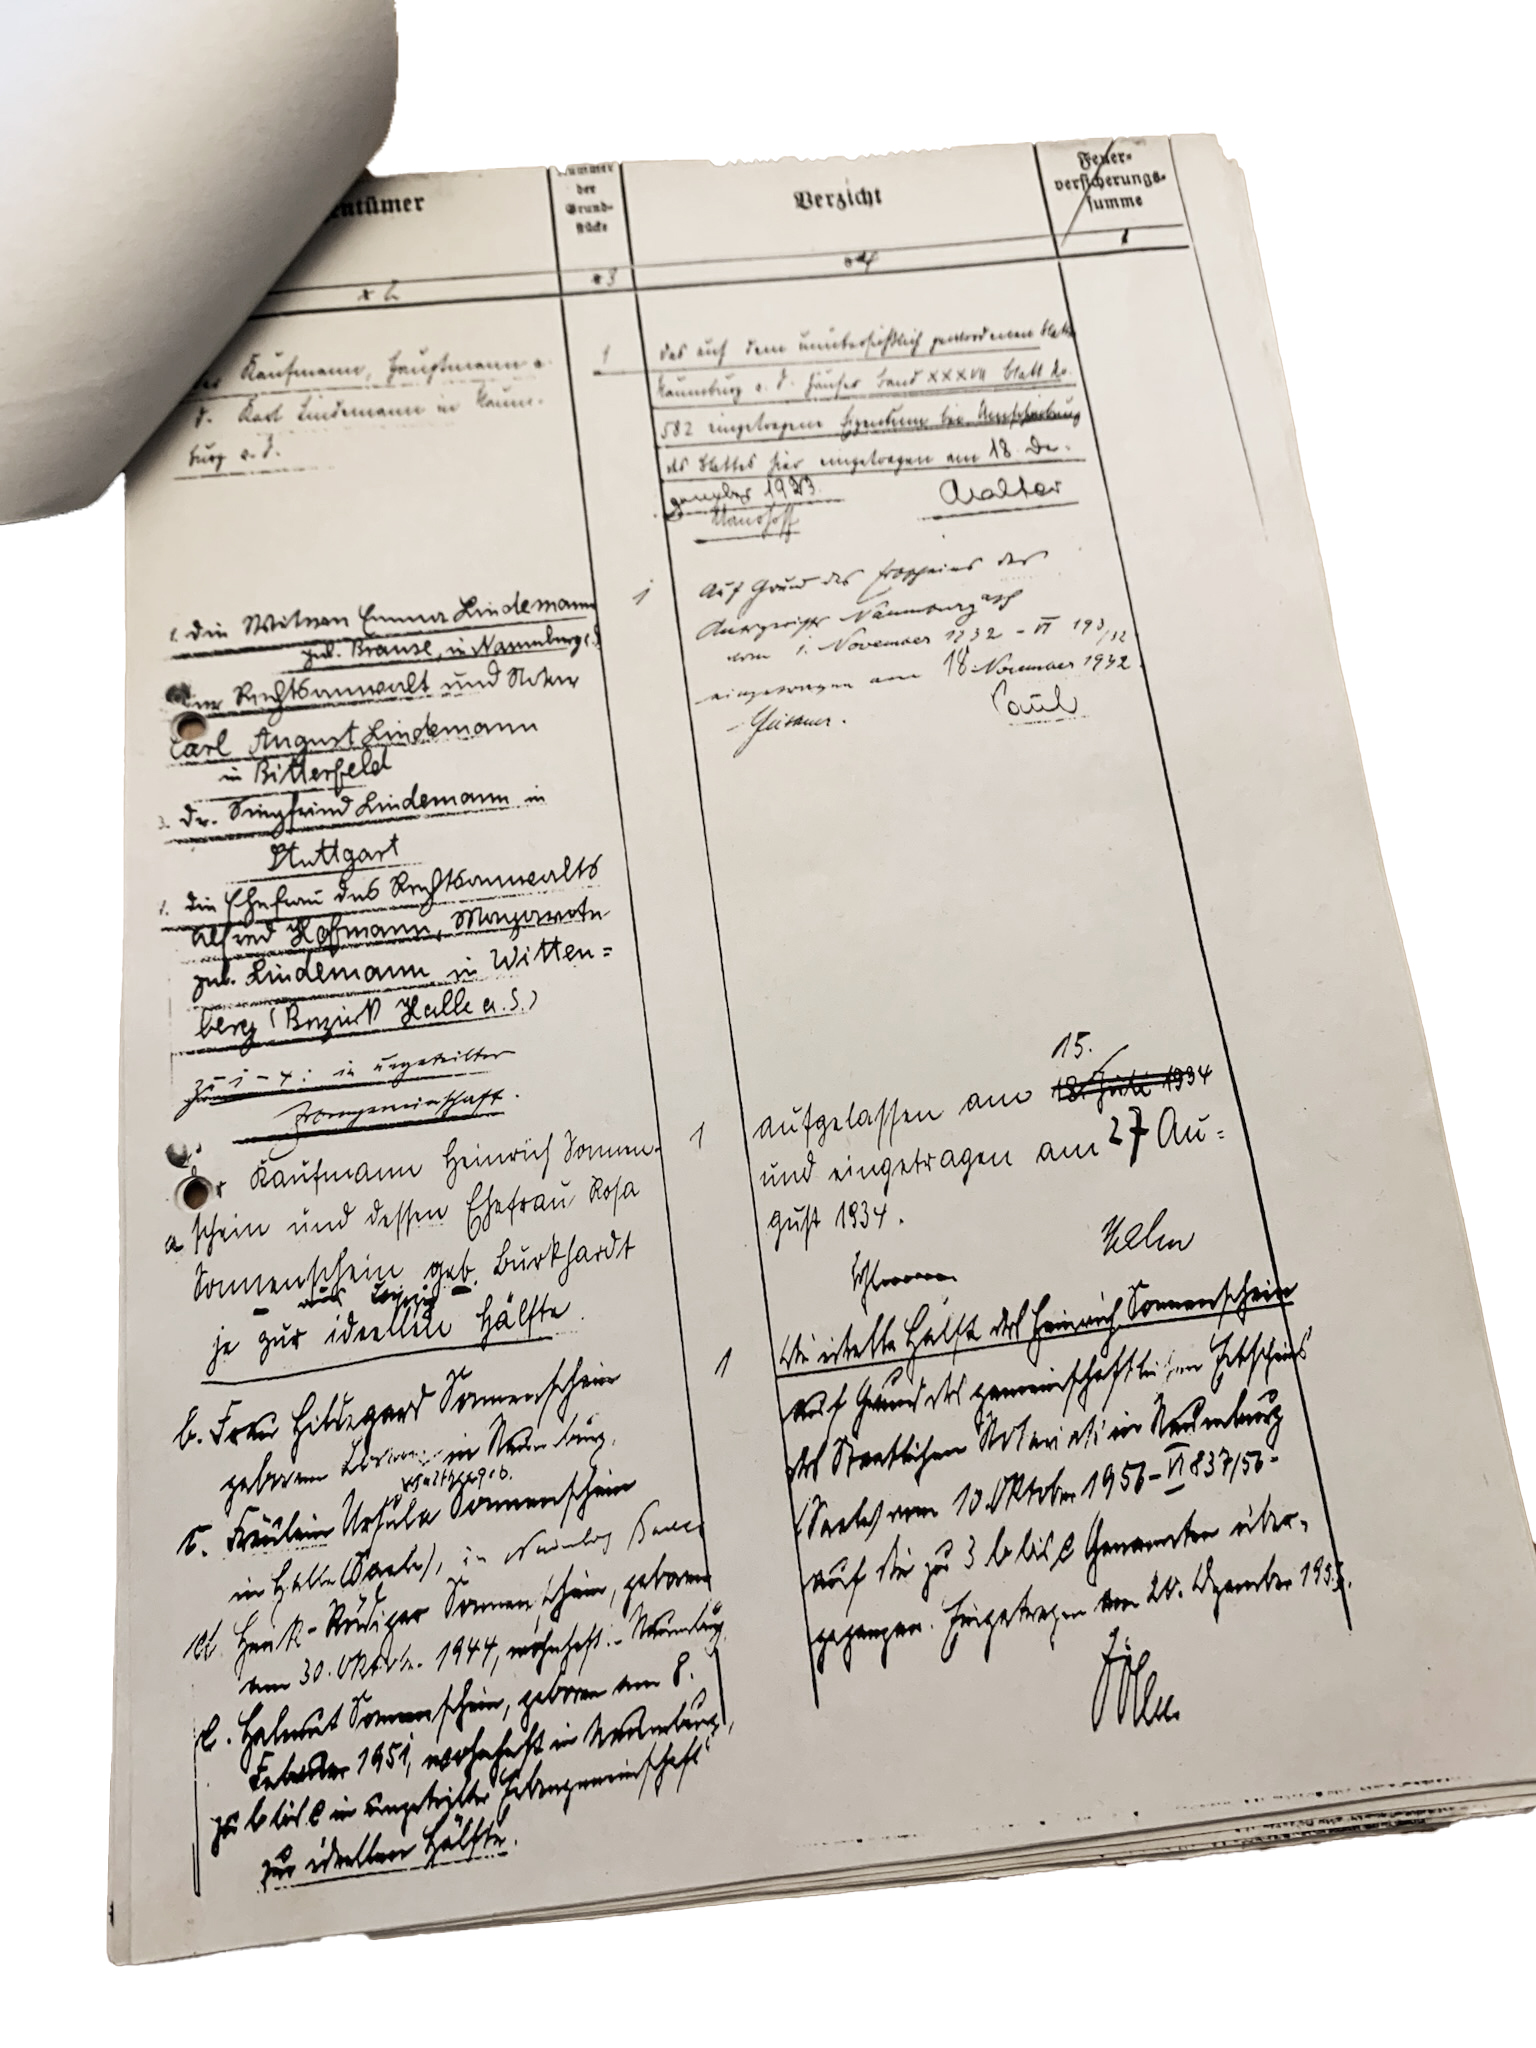 entümer
Nummer
der
Grund-
stücke
Verzicht
Feuer-
versicherungs-
summe
2
3
4
Kaufmann, Hauptmann a.
D. Karl Lindemann in Naum-
burg a. S.
1
das auf dem unübersichtlich gewordenen Blatt
Naumburg a. S. Häuser Band XXXVII Blatt No.
582 eingetragene Eigentum bei Umschreibung
des Blattes hier eingetragen am 18. De-
zember 1923.
Walter
1. die Witwe Emma Lindemann
geb. Brause, in Naumburg a. S.
der Rechtsanwalt und Notar
Carl August Lindemann
in Bitterfeld
3. Dr. Siegfried Lindemann in
Stuttgart
die Ehefrau des Rechtsanwalts
Alfred Hofmann, Margarete
geb. Lindemann in Witten=
berg (Bezirk Halle a. S.)
zu 1-4: in ungeteilter
Erbengemeinschaft.
1
Auf Grund des Erbscheins des
Amtsgerichts Naumburg a/S
vom 1. November 1932 - VI 193/32
eingetragen am 18. November 1932.
Paul
a
Kaufmann Heinrich Sonnen-
schein und dessen Ehefrau Rosa
Sonnenschein geb. Burkhardt
je zur ideellen Hälfte.
1
15.
aufgelassen am 18. Juli 1934
und eingetragen am 27 Au=
gust 1934.
b. Frau Hildegard Sonnenschein
geborene in Naumburg,
c. Fräulein Ursula Sonnenschein
in Halle (Saale),
d. Sonnenschein, geboren
am 30. Oktober 1944, wohnhaft Naumburg,
e. Helmut Sonnenschein, geboren am 8.
Februar 1951, wohnhaft in Naumburg,
zu b bis e in ungeteilter Erbengemeinschaft
zur ideellen Hälfte.
1
Die ideelle Hälfte des Heinrich Sonnenschein
auf Grund des gemeinschaftlichen Erbscheins
des Staatlichen Notariats in Naumburg
(Saale) vom 10. Oktober 1956 - VI 837/56 -
auf die zu 3 b bis e Genannten über-
gegangen. Eingetragen am Dezember